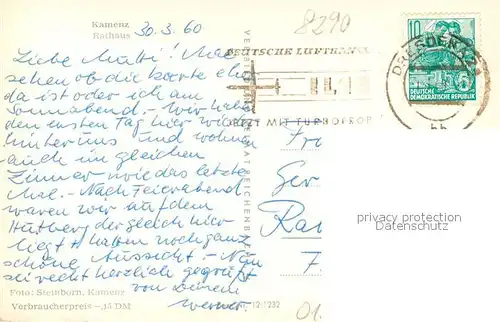 Kamenz
Rathaus
30.3.60
8290
Liebe Mutti! Mal
sehen ob die Karte eher
da ist oder ich am
Sonnabend. - Wir haben
den ersten Tag hier wieder
hinter uns und wohnen
auch im gleichen
Zimmer wie das letzte
Mal. - Nach Feierabend
waren wir auf dem
Hutberg der gleich hier
liegt u. haben noch ganz
schöne Aussicht. - Nun
sei recht herzlich gegrüßt
von Deinem
Werner.
Foto: Steinborn, Kamenz
Verbraucherpreis -,15 DM
DEUTSCHE LUFTHANSA
JETZT MIT TURBOPROP
DRESDEN
bb
10
DEUTSCHE
DEMOKRATISCHE REPUBLIK
REICHENBACH
Fr
Ger
Ka
F
privacy protection
Datenschutz
12/1232
01